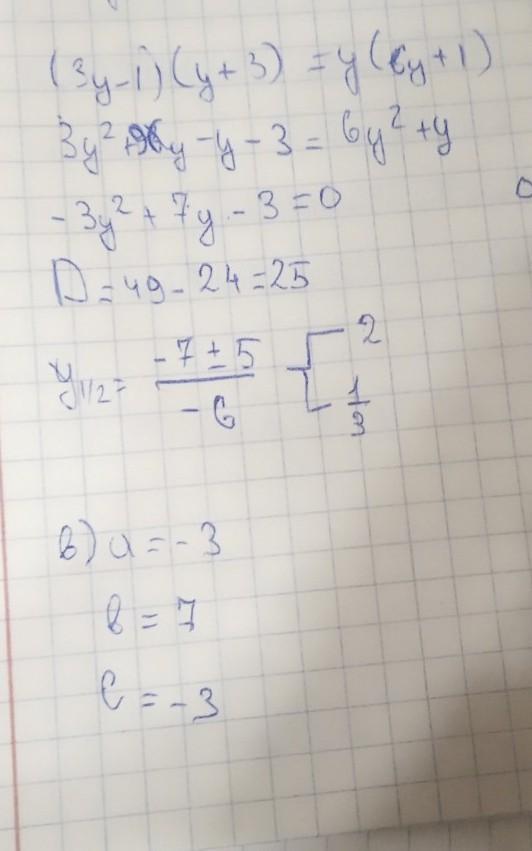 (3y-1)(y+3) = y(6y+1)
3y²+9y-y-3 = 6y²+y
-3y²+7y-3=0
D=49-24=25
y1/2= (-7±5)/(-6) 2
1/3
в) a=-3
b=7
c=-3